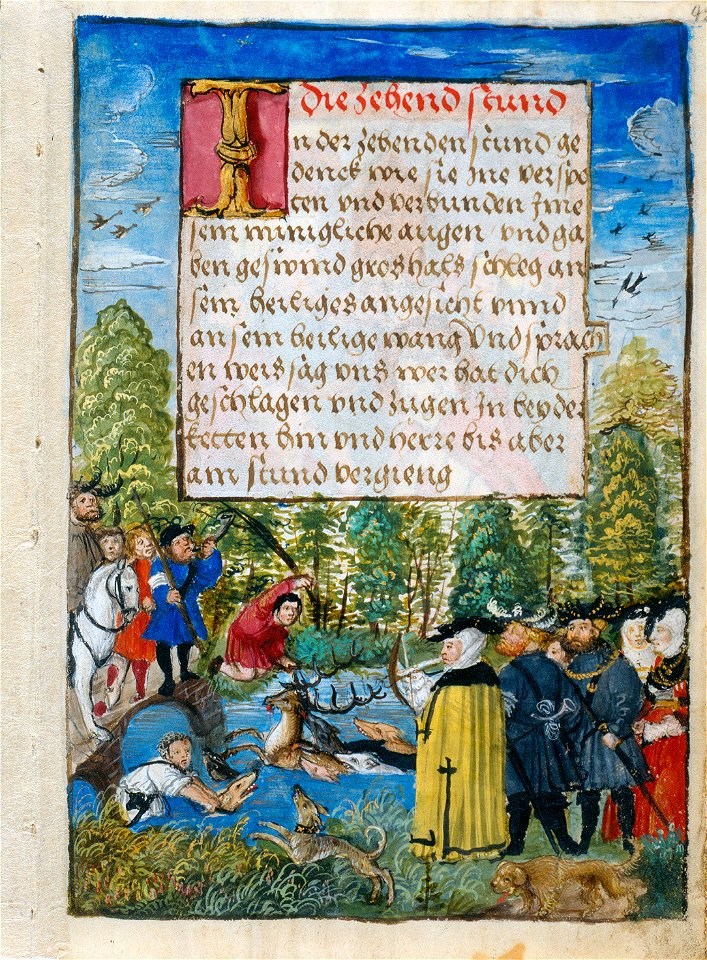 Die Zehend stund
In der zehenden stund ge
denck wie sie ine verspo
ten und verbunden Ime
sein minigliche augen und ga
ben geswind gros hals schleg an
sein heiliges angesicht vnnd
an sein heilige wang Vnd sprach
en weissag vns wer hat dich
geschlagen vnd zugen In bey der
ketten hin vnd herre bis aber
am stund vergieng